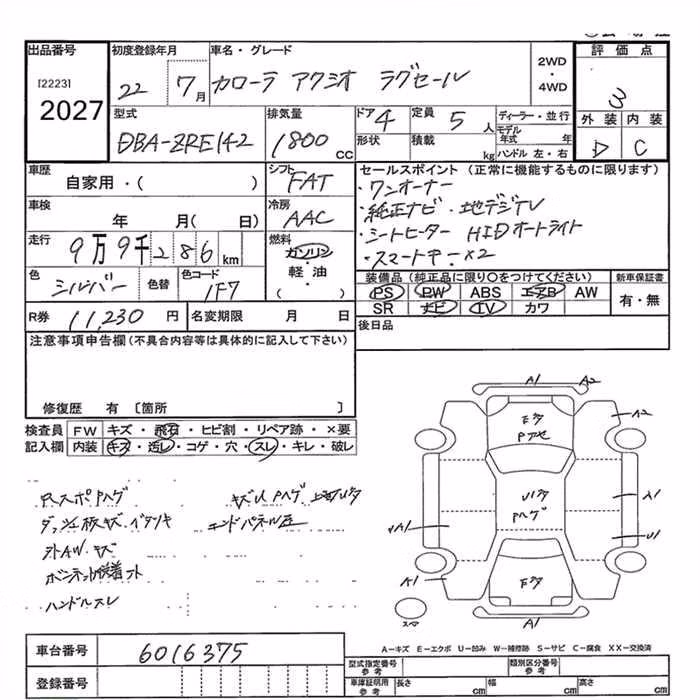 出品番号
[2223]
2027
初度登録年月
22 7月
車名・グレード
カローラ アクシオ ラグゼール
2WD
・
4WD
評価点
3
外装 内装
D C
型式
DBA-ZRE142
排気量
1800 CC
ドア 4
形状
定員 5 人
積載 kg
ディーラー・並行
モデル年式 年
ハンドル 左・右
車歴
自家用・( )
シフト
FAT
車検
年 月( 日)
冷房
AAC
走行
9万9千286 km
燃料
ガソリン
・
軽・油
( )
色
シルバー
色替
色コード
1F7
セールスポイント (正常に機能するものに限ります)
・ワンオーナー
・純正ナビ・地デジTV
・シートヒーター HIDオートライト
・スマートキー×2
装備品 (純正品に限り○をつけてください)
PS PW ABS エアB AW
SR ナビ TV カワ
新車保証書
有・無
後日品
R券 11,230 円
名変期限 月 日
注意事項申告欄(不具合内容等は具体的に記入して下さい)
修復歴 有 〔箇所 〕
検査員 FW キズ・飛石・ヒビ割・リペア跡・×要
記入欄 内装 キズ・汚レ・コゲ・穴・スレ・キレ・破レ
ハンドルスレ
A1 A2
A2
A1
U1
A1
A1
A1
スマ
A-キズ E-エクボ U-凹み W-補修跡 S-サビ C-腐食 XX-交換済
車台番号 6016375
登録番号
型式指定番号 参考
類別区分番号 参考
車庫証明用 参考
長さ cm
幅 cm
高さ cm